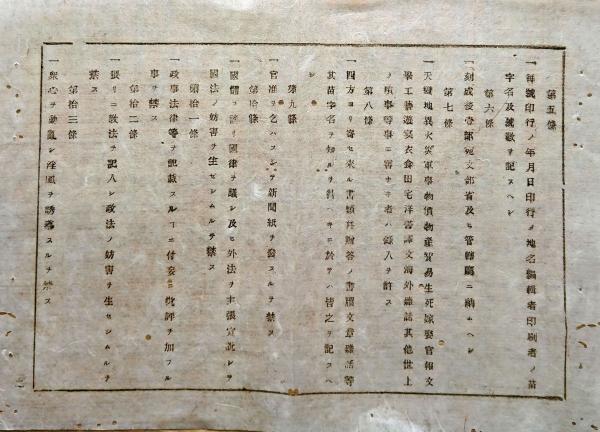 第五條
一每號印行ノ年月日印行ノ地名編輯者印刷者ノ苗
字名及號數ヲ記スヘシ
第六條
一刻成後壹部宛文部省及ヒ管轄廳ニ納ムヘシ
第七條
一天變地異火災軍事物價物產貿易生死嫁娶官報文
學工藝遊宴衣食田宅洋書譯文海外雜話其他世上
ノ瑣事等事ニ害ナキ者ハ錄入ヲ許ス
第八條
一四方ヨリ寄セ來ル書類其贈答ノ書牘文章雜話等
其苗字名ヲ知ルヲ得ヘキニ於テハ皆之ヲ記スヘ
シ
第九條
一官准ヲ乞ハスシテ新聞紙ヲ發スルヲ禁ス
第拾條
一國體ヲ誹リ國律ヲ議シ及ヒ外法ヲ主張宣說シテ
國法ノ妨害ヲ生セシムルヲ禁ス
第拾一條
一政事法律等ヲ記載スルコニ付妄ニ批評ヲ加フル
事ヲ禁ス
第拾二條
一猥リニ敎法ヲ記入シ政法ノ妨害ヲ生セシムルヲ
禁ス
第拾三條
一衆心ヲ動亂シ淫風ヲ誘導スルヲ禁ス